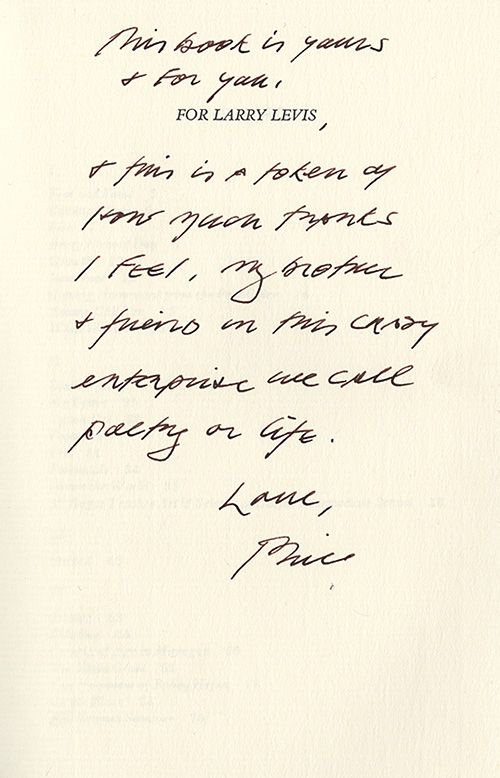 This book is yours
& for you,
FOR LARRY LEVIS,
& this is a token of
how much thanks
I FEEL, my brother
& friend in this crazy
enterprise we call
poetry or life.
Love,